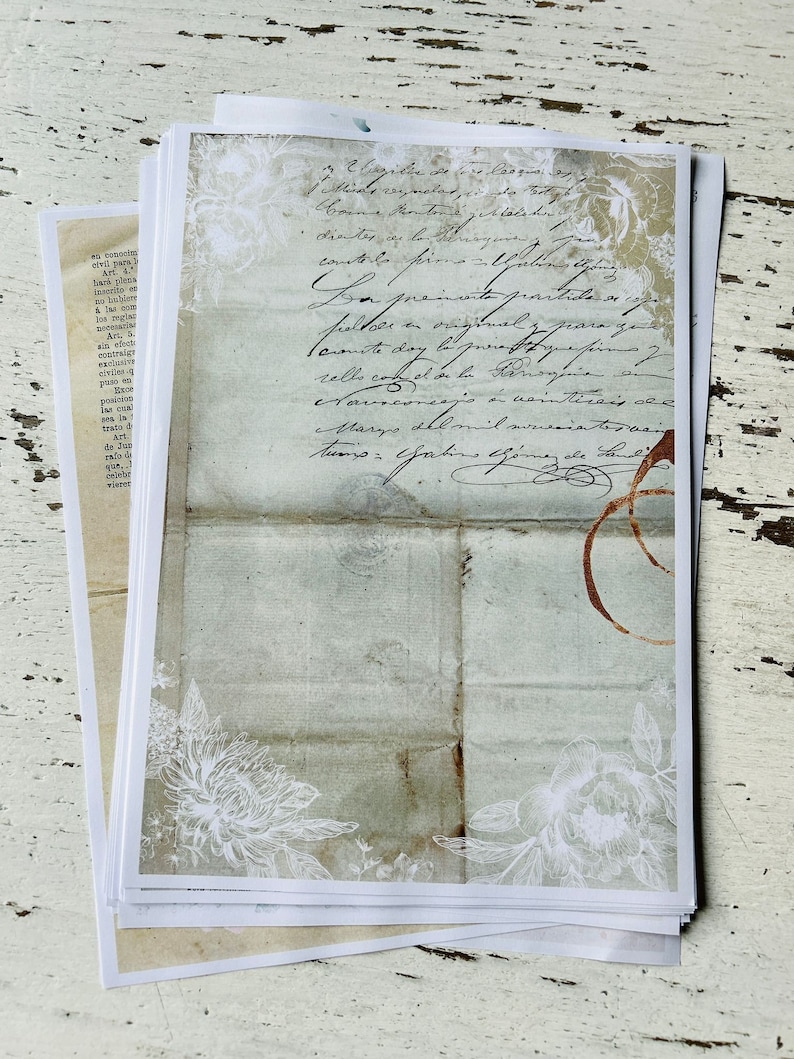 en conocim
civil para l
Art. 4.°
hará plena
inscrito en
no hubiere
á las com
los reglam
necesarias
Art. 5.
sin efecto
contraiga
exclusiva
civiles q
puso en
Exce
posicion
las cual
sea la
trato de
Art.
de Jun
rafo de
que,
celebr
vieren
y Virgilio de
Misas
y
dientes de la Parroquia, y
firmo = Gabino Gómez
La presente partida es co
pel de su original y para que
conste doy la presente que firmo y
sello con el de la Parroquia en
Navaconcejo a veintiseis de
Marzo del mil novecientos vein
tiuno = Gabino Gómez de Sandi